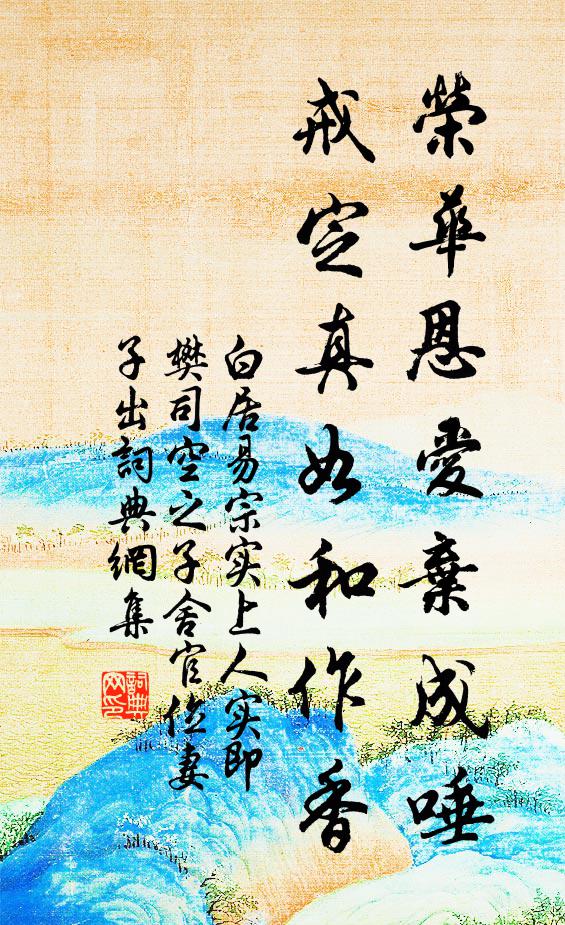 榮華恩愛棄成唾
戒定真如和作香
白居易宗实上人实即
樊司空之子舍官位妻
子出詞典網集
詞典网印